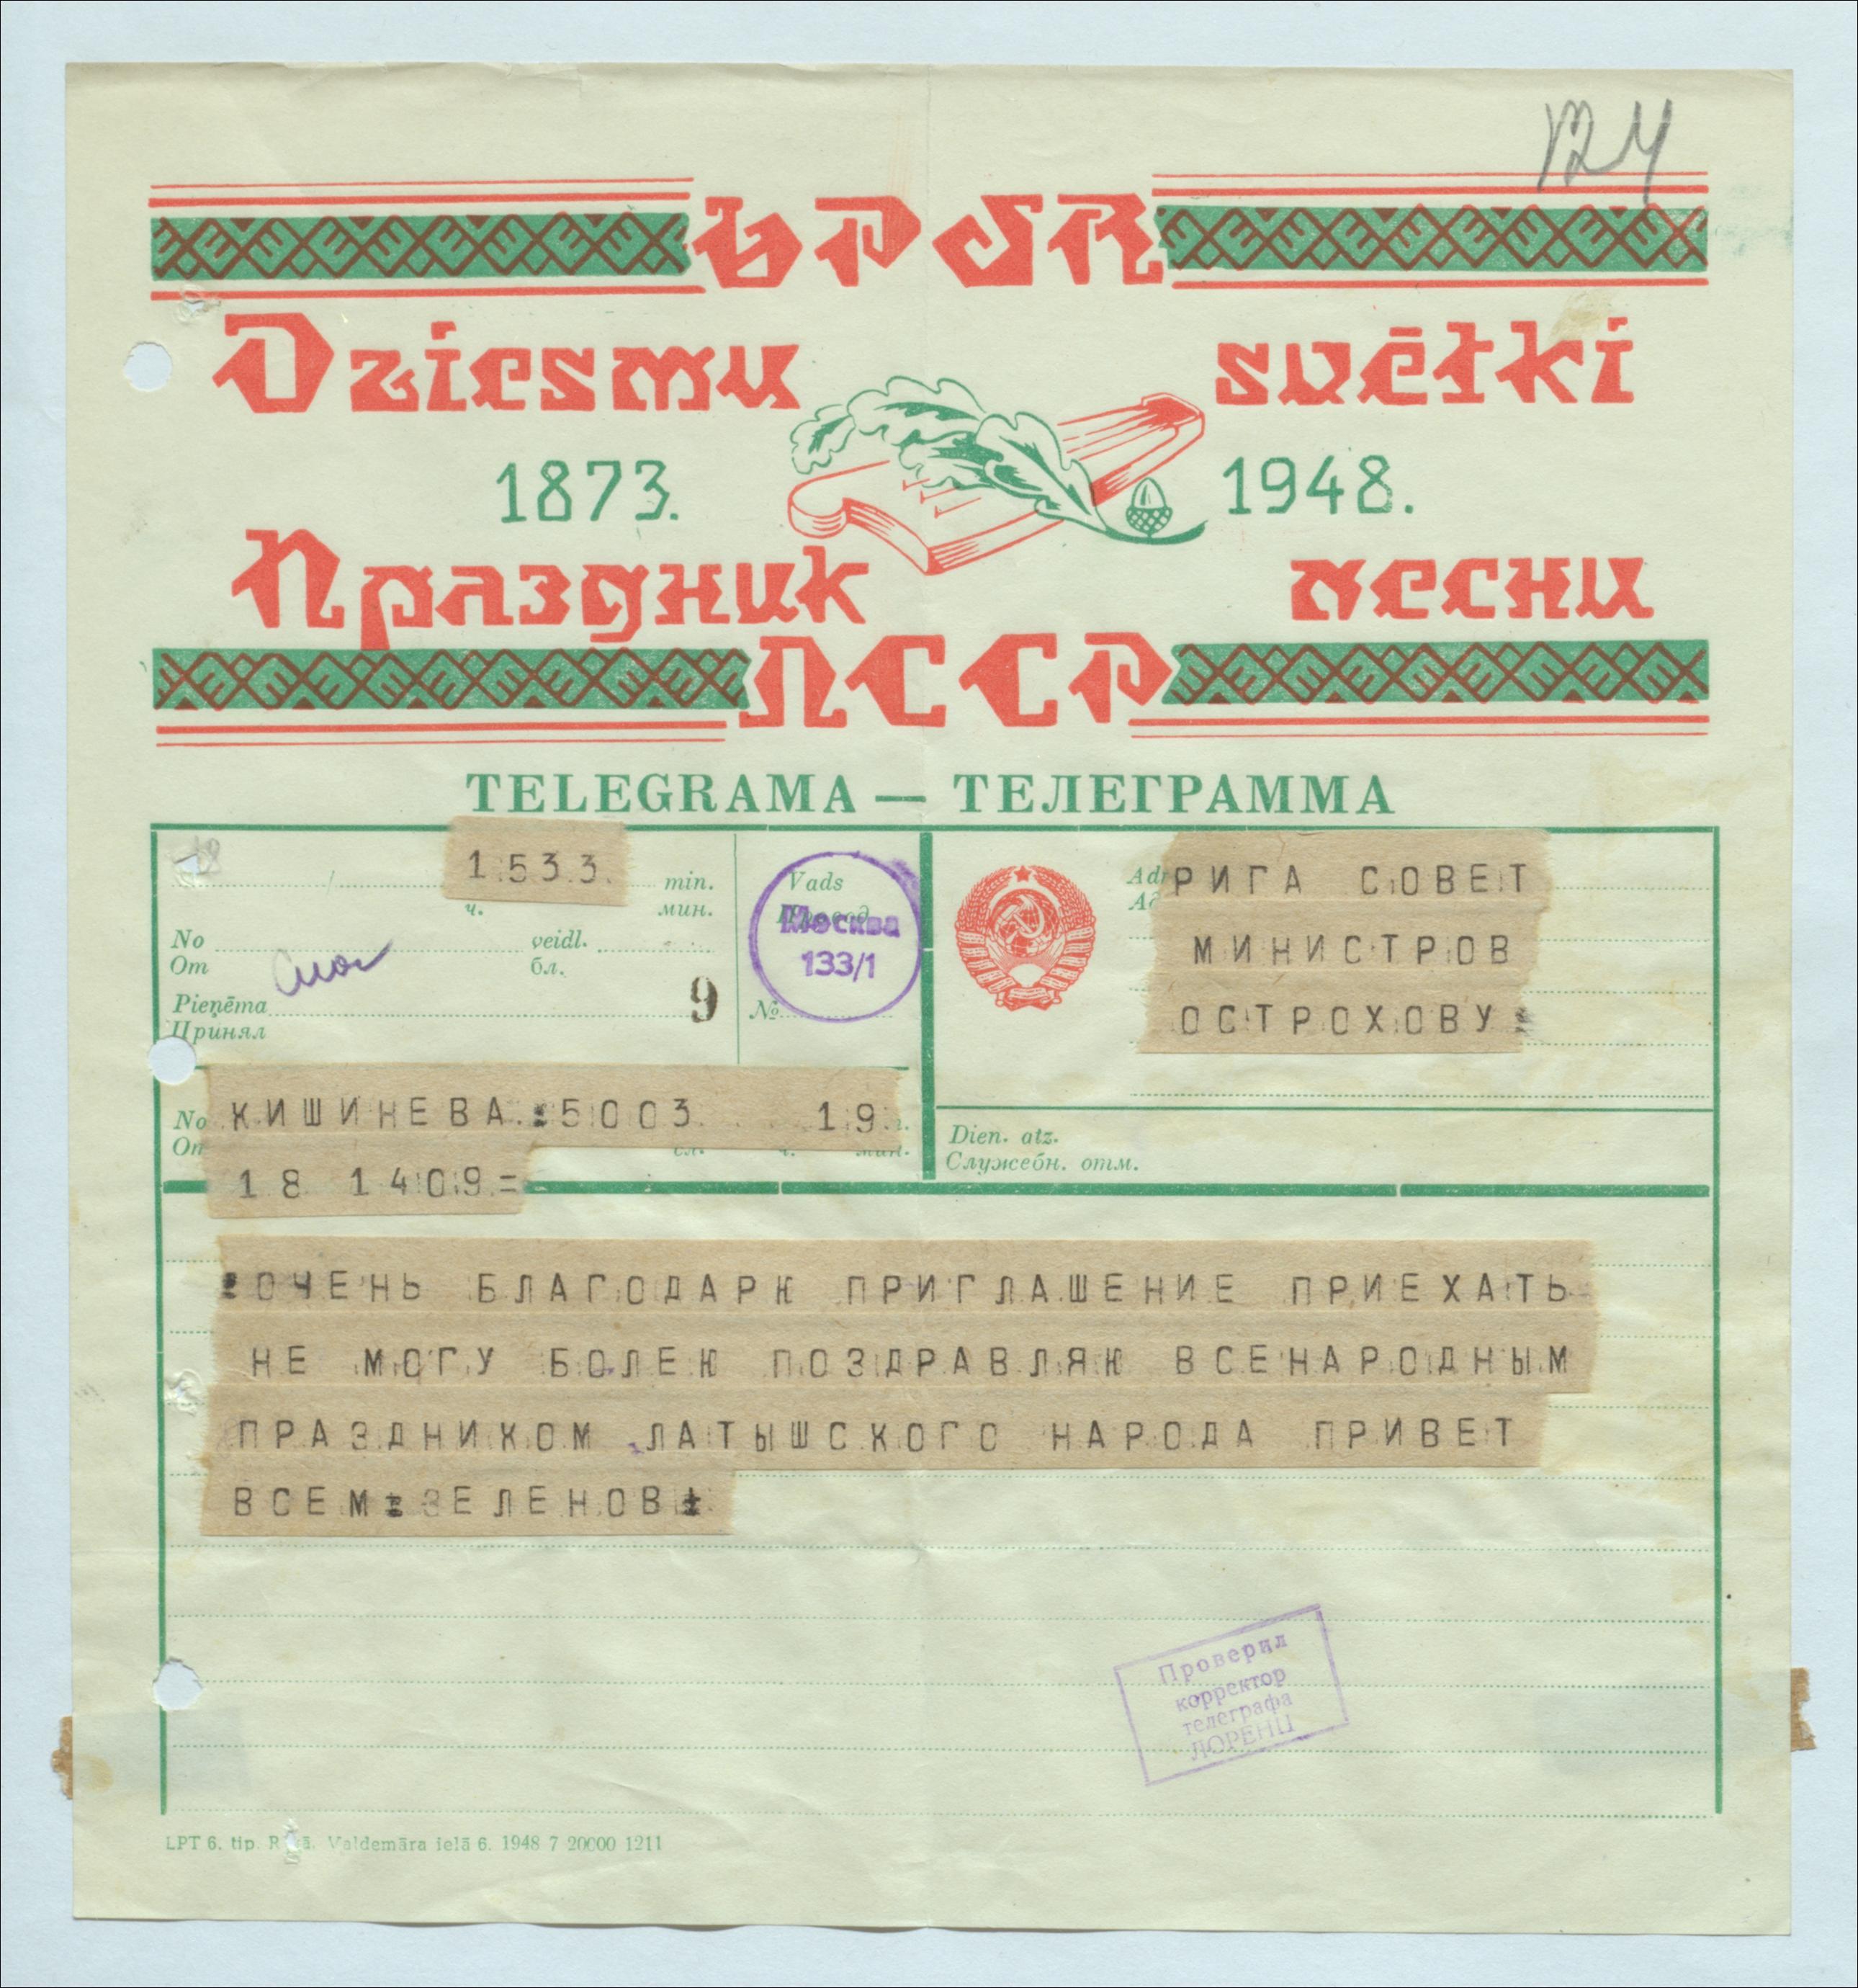 124
LPSR
Dziesmu svētki
1873. 1948.
Праздник песни
ЛССР
TELEGRAMA — ТЕЛЕГРАММА
1533 min.
ч. мин.
No veidl.
От бл.
Pieņēma 9
Принял
Vads
Москва
133/1
№
РИГА СОВЕТ
МИНИСТРОВ
ОСТРОХОВУ=
No КИШИНЕВА 5003 19
18 1409=
Dien. atz.
Служебн. отм.
ОЧЕНЬ БЛАГОДАРЮ ПРИГЛАШЕНИЕ ПРИЕХАТЬ
НЕ МОГУ БОЛЕЮ ПОЗДРАВЛЯЮ ВСЕНАРОДНЫМ
ПРАЗДНИКОМ ЛАТЫШСКОГО НАРОДА ПРИВЕТ
ВСЕМ=ЗЕЛЕНОВ+
Проверил
корректор
телеграфа
ЛОРЕНЦ
LPT 6. tip. Rīgā. Valdemāra ielā 6. 1948 7 20000 1211